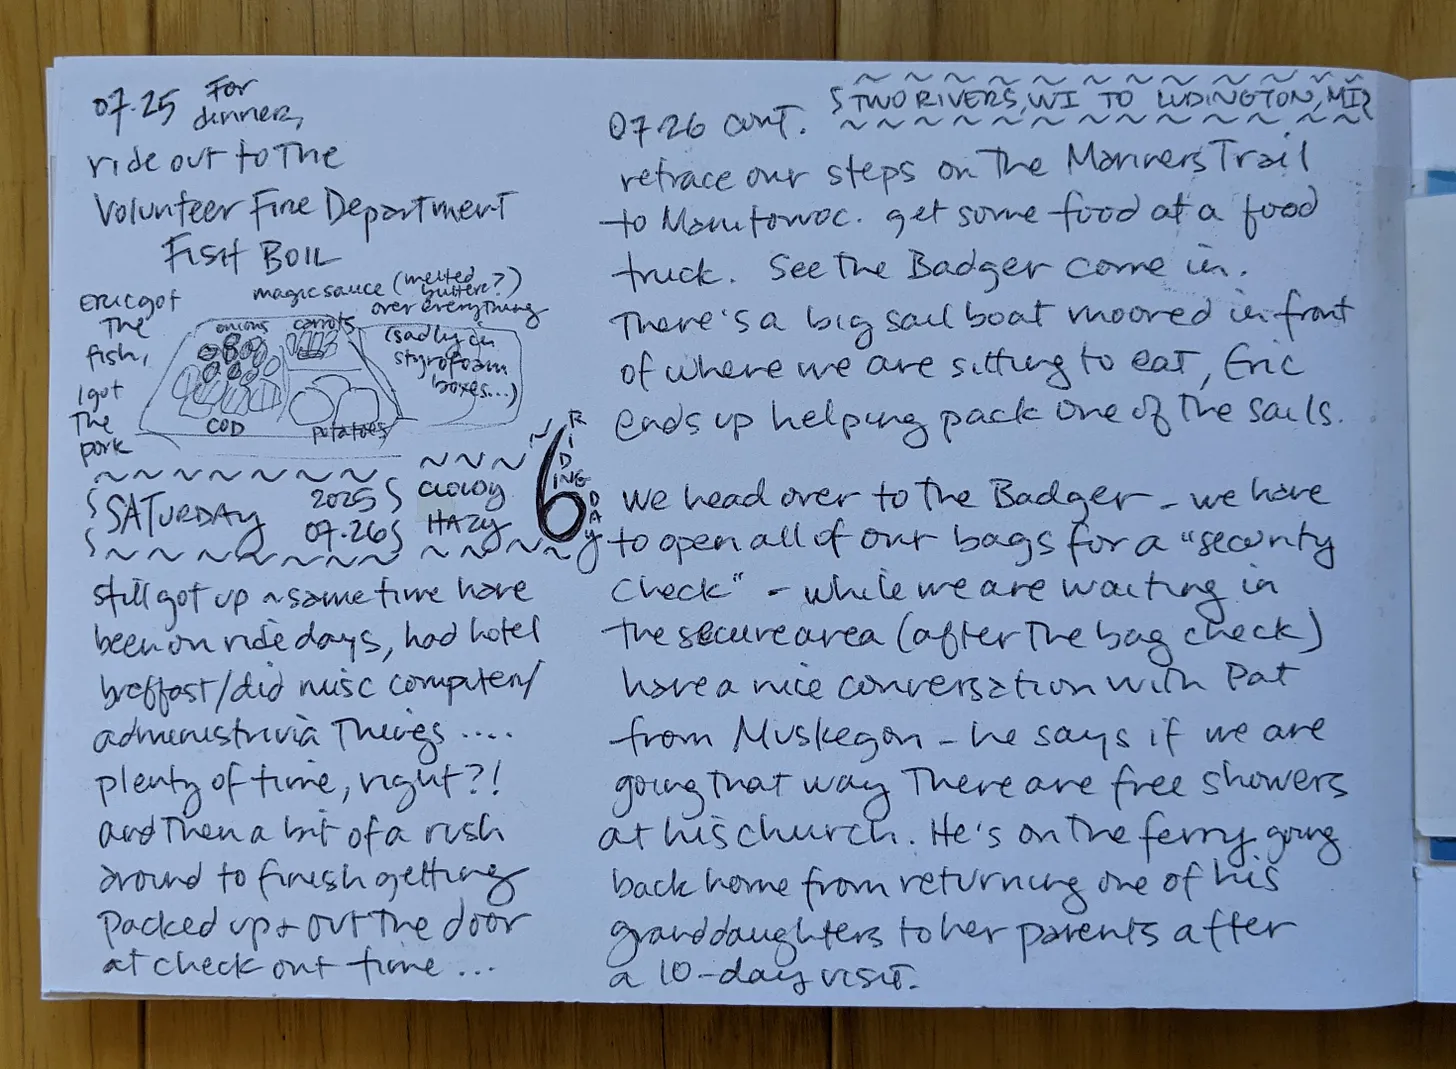 07.25 For
dinner,
ride out to the
Volunteer Fire Department
FISH BOIL
Eric got
the
fish,
I got
the
pork
magic sauce (melted
butter?)
over everything
(sadly in
styrofoam
boxes...)
onions
carrots
COD
potatoes
SATURDAY
2025
07.26
CLOUDY
HAZY
6
RIDING DAY
still got up ~ same time have
been on ride days, had hotel
breffast/did misc computer/
administrivia things ....
plenty of time, right?!
and then a bit of a rush
around to finish getting
packed up + out the door
at check out time ...
07.26 cont.
TWO RIVERS, WI TO LUDINGTON, MI
retrace our steps on the Mariners Trail
to Manitowoc. get some food at a food
truck. See the Badger come in.
There's a big sail boat moored in front
of where we are sitting to eat, Eric
ends up helping pack one of the sails.
We head over to the Badger - we have
to open all of our bags for a "security
check" - while we are waiting in
the secure area (after the bag check)
have a nice conversation with Pat
from Muskegon - he says if we are
going that way there are free showers
at his church. He's on the ferry going
back home from returning one of his
granddaughters to her parents after
a 10-day visit.